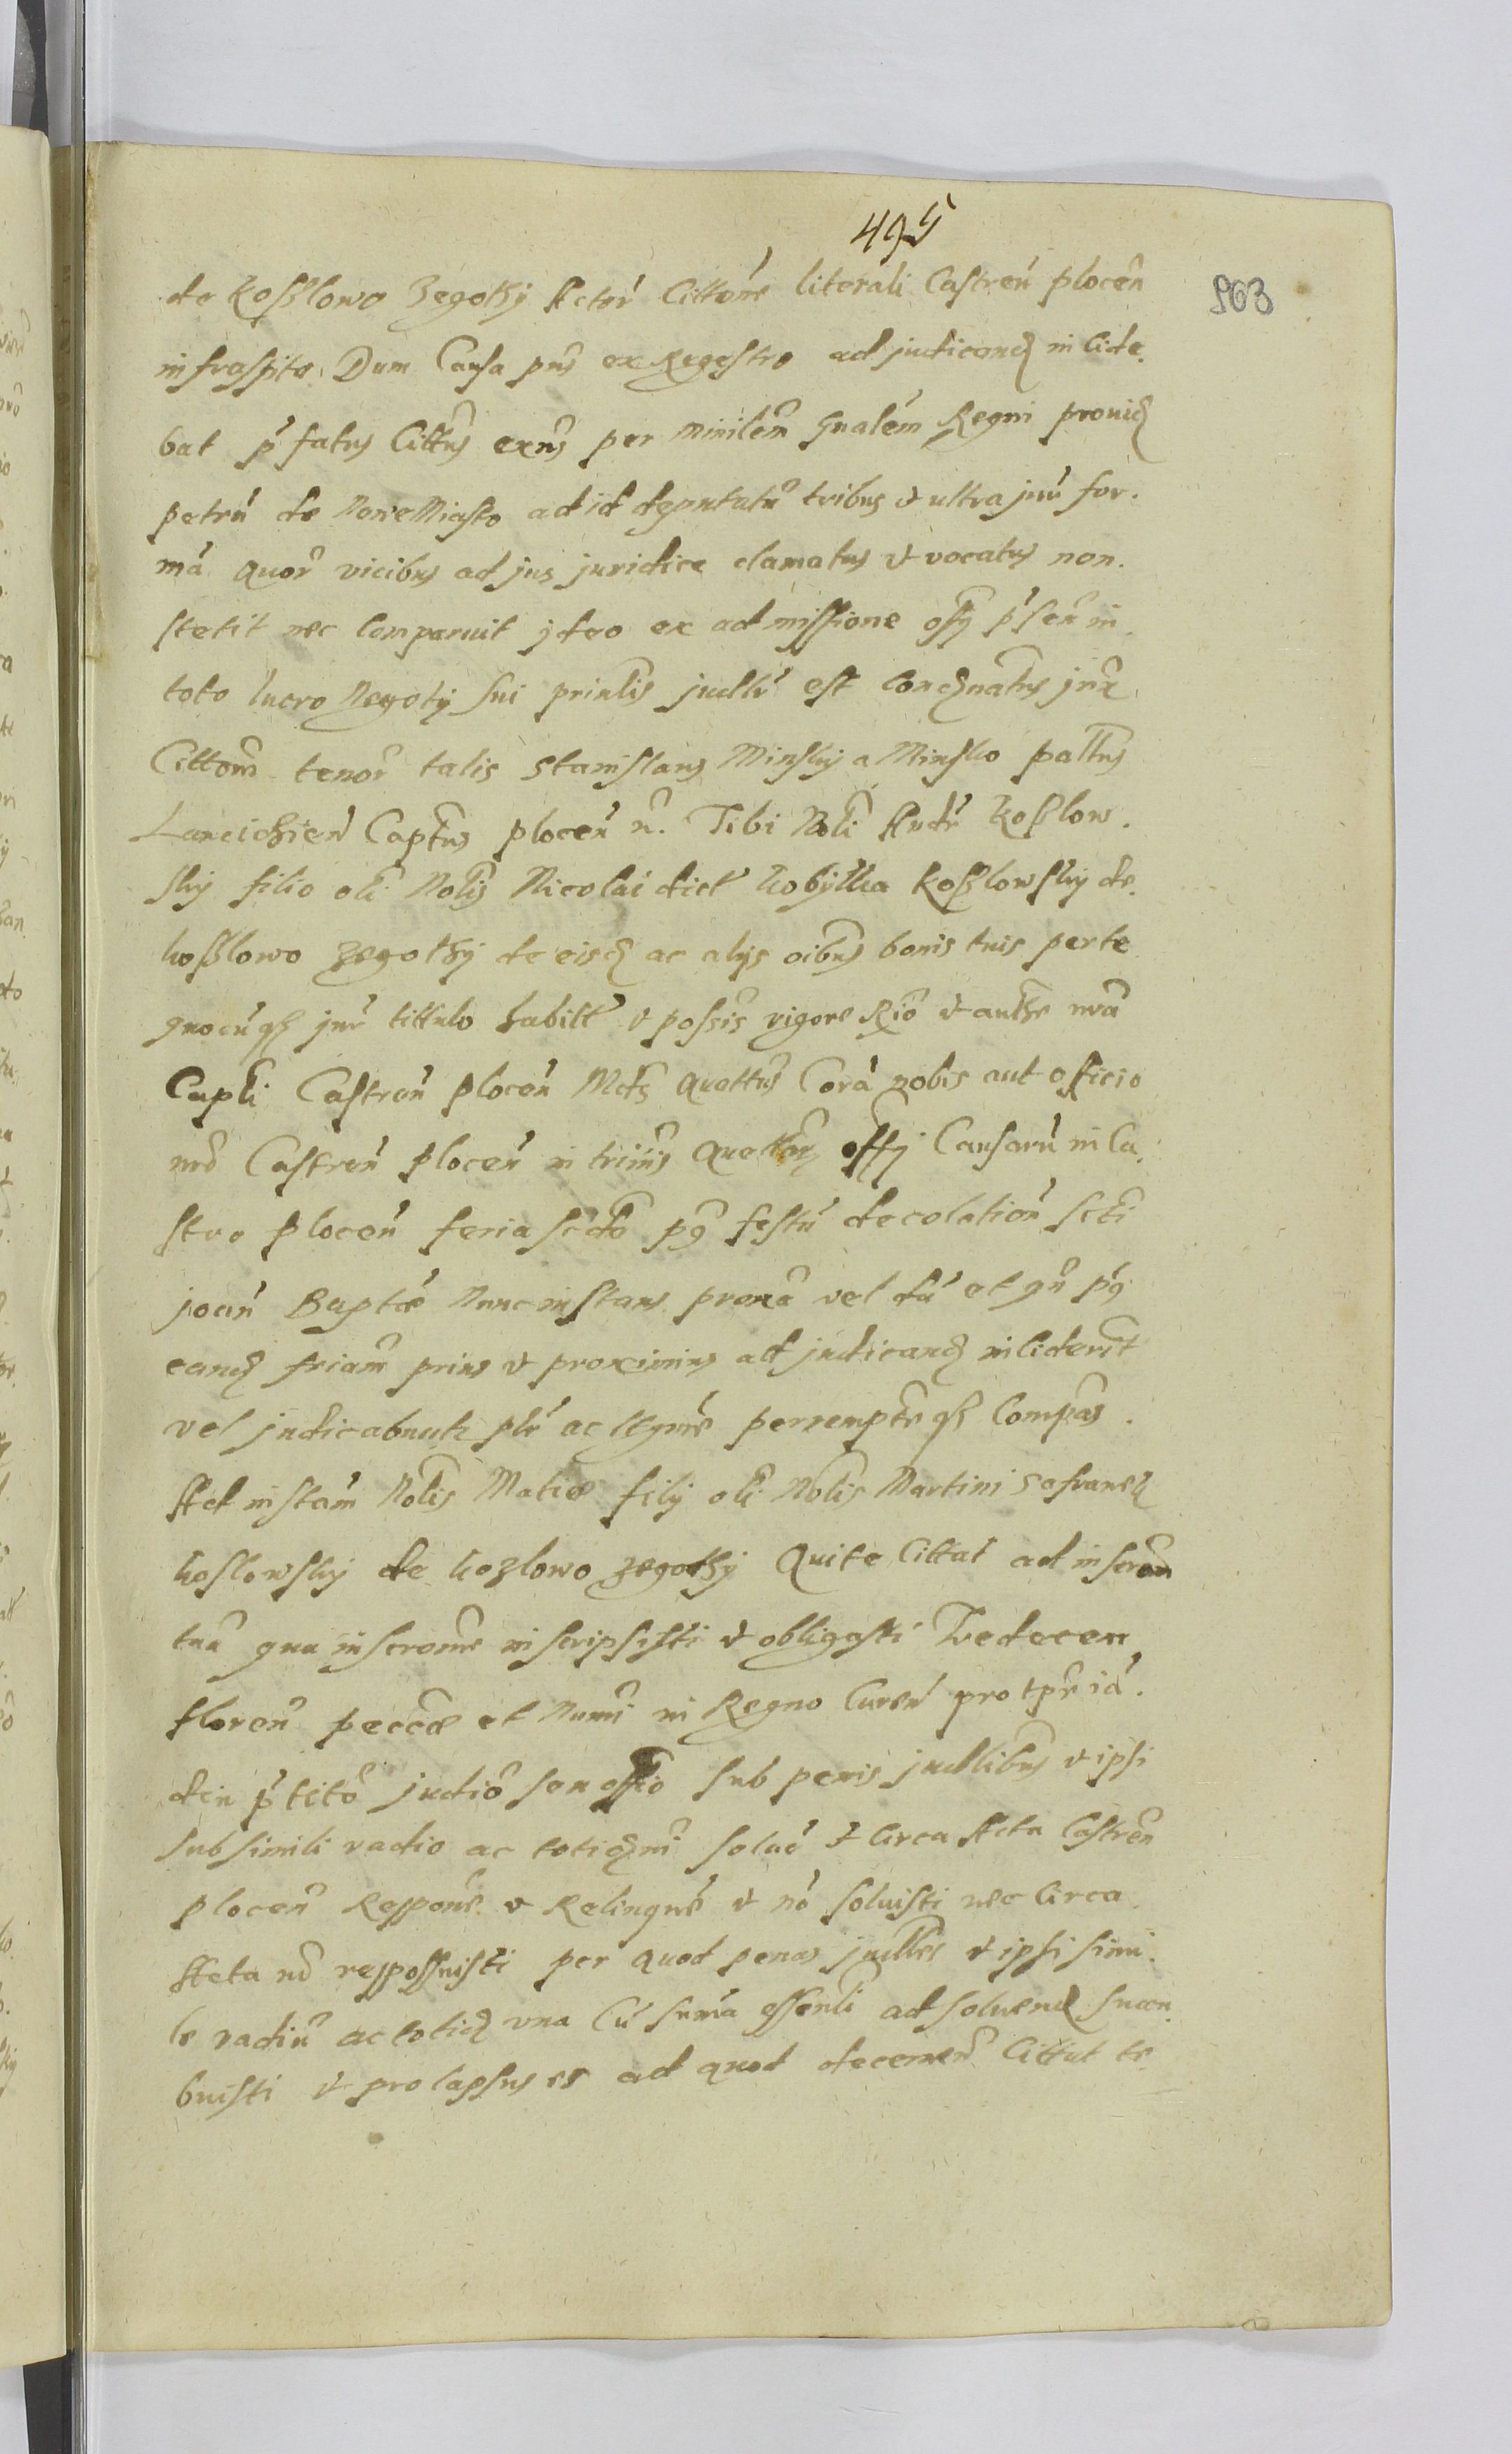 495
903
de Koßlowo Zegothÿ Actor Cittone literali Castren plocen
infraspto. Dum Causa pns ex Regestro ad judicand incide.
bat pfatus Cittus exns per Minilem Gnalem Regni provid
petru de Nove Miasto ad id deputatu tribus et ultra juri for.
ma quor vicibus ad jus juridice clamatus et vocatus non.
stetit nec Comparuit jdeo ex admissione offy psen in
toto lucro Negotÿ sui prinlis judlr est Condnatus jnr
Cittonis tenor talis Stanislaus Minskÿ a Minsko palltus
Lancicien Captus plocen n. Tibi Nobli Andr Koßlow.
skÿ filio oli Noblis Nicolai dict Kobÿlka Koßlowskÿ de
koßlowo zegothÿ de eisd ac alÿs oibus bonis tuis per te
quocuqz jur tittulo habitt et possis rigore Rio et authe nra
Capli Castren plocen Mdz quattus Cora nobis aut officio
nro Castren plocen in triis quettar offÿ Causaru in Ca
stro plocen feria scda po festu decolation scti
joan Baptæ Nunc instans prona vel du et qn po
eand feriam prius et proximius ad judicand inciderit
vel judicabnutr plr ac ltgime perrempte qz Compas.
Ad instam Noblis Matiæ filÿ oli Noblis Martini Safranek
koslowskÿ de kozlowo zegothÿ Qui te Cittat ad inscron
tua qua inscrome inscripsisti et obligasti Tredecen
floren pecce et Numi in Regno Curen pro tpre ia.
diu ptito judio seu offio sub penis judlibus et ipsi
sub simili vadio ac totidmi solue et Circa Acta Castren
plocen Reppone et Relinque et no solvisti nec Circa
Acta no reppossuisti per quod penas judles et ipsi simi.
le vadiu ac totid una Cu suma essenli ad solvend sucn
buisti et prolapsus es ad quod decernen Cittat te